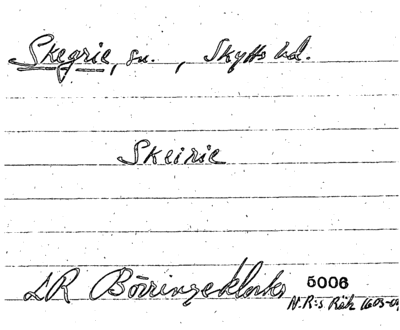 Skegrie, sn., Skytts hd.
Skeirie
LR Börringekloster 5006
N.R:s Räk 1603-04